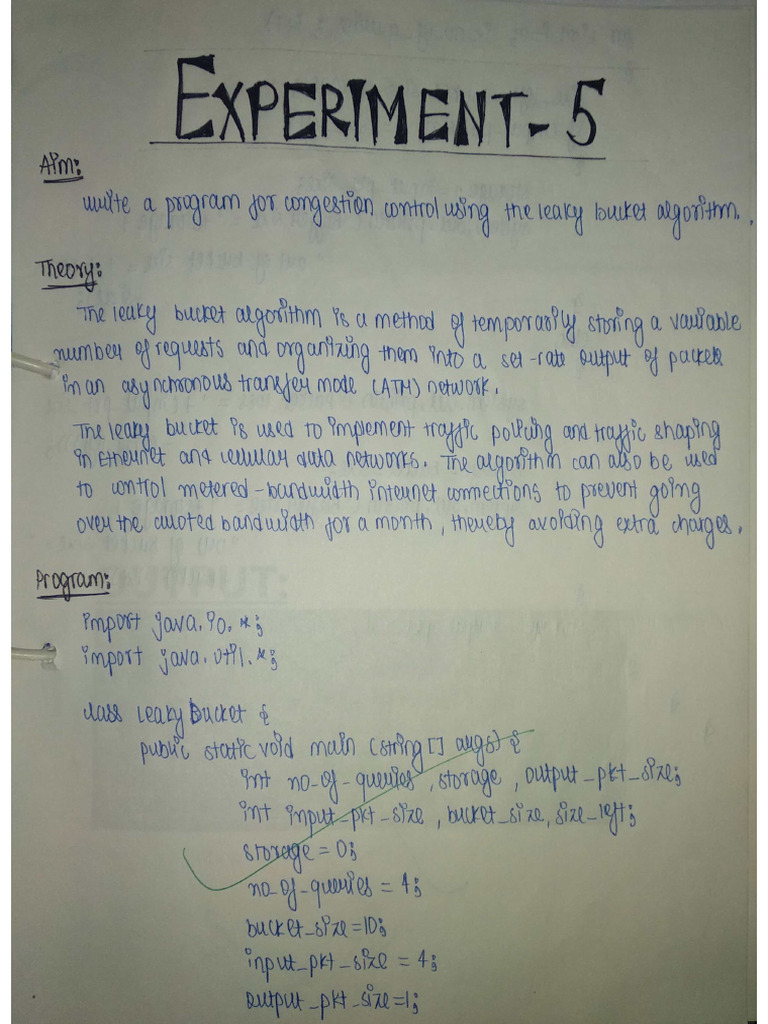 EXPERIMENT - 5
Aim:
Write a program for congestion control using the leaky bucket algorithm.
Theory:
The leaky bucket algorithm is a method of temporarily storing a variable
number of requests and organizing them into a set-rate output of packets
in an asynchronous transfer mode (ATM) network.
The leaky bucket is used to implement traffic policing and traffic shaping
in Ethernet and cellular data networks. The algorithm can also be used
to control metered-bandwidth internet connections to prevent going
over the alloted bandwidth for a month, thereby avoiding extra charges.
Program:
import java.io.*;
import java.util.*;
class Leaky Bucket {
public static void main (string [] args) {
int no_of_queries, storage, output_pkt_size;
int input_pkt_size, bucket_size, size_left;
storage = 0;
no_of_queries = 4;
bucket_size=10;
input_pkt_size = 4;
output_pkt_size=1;